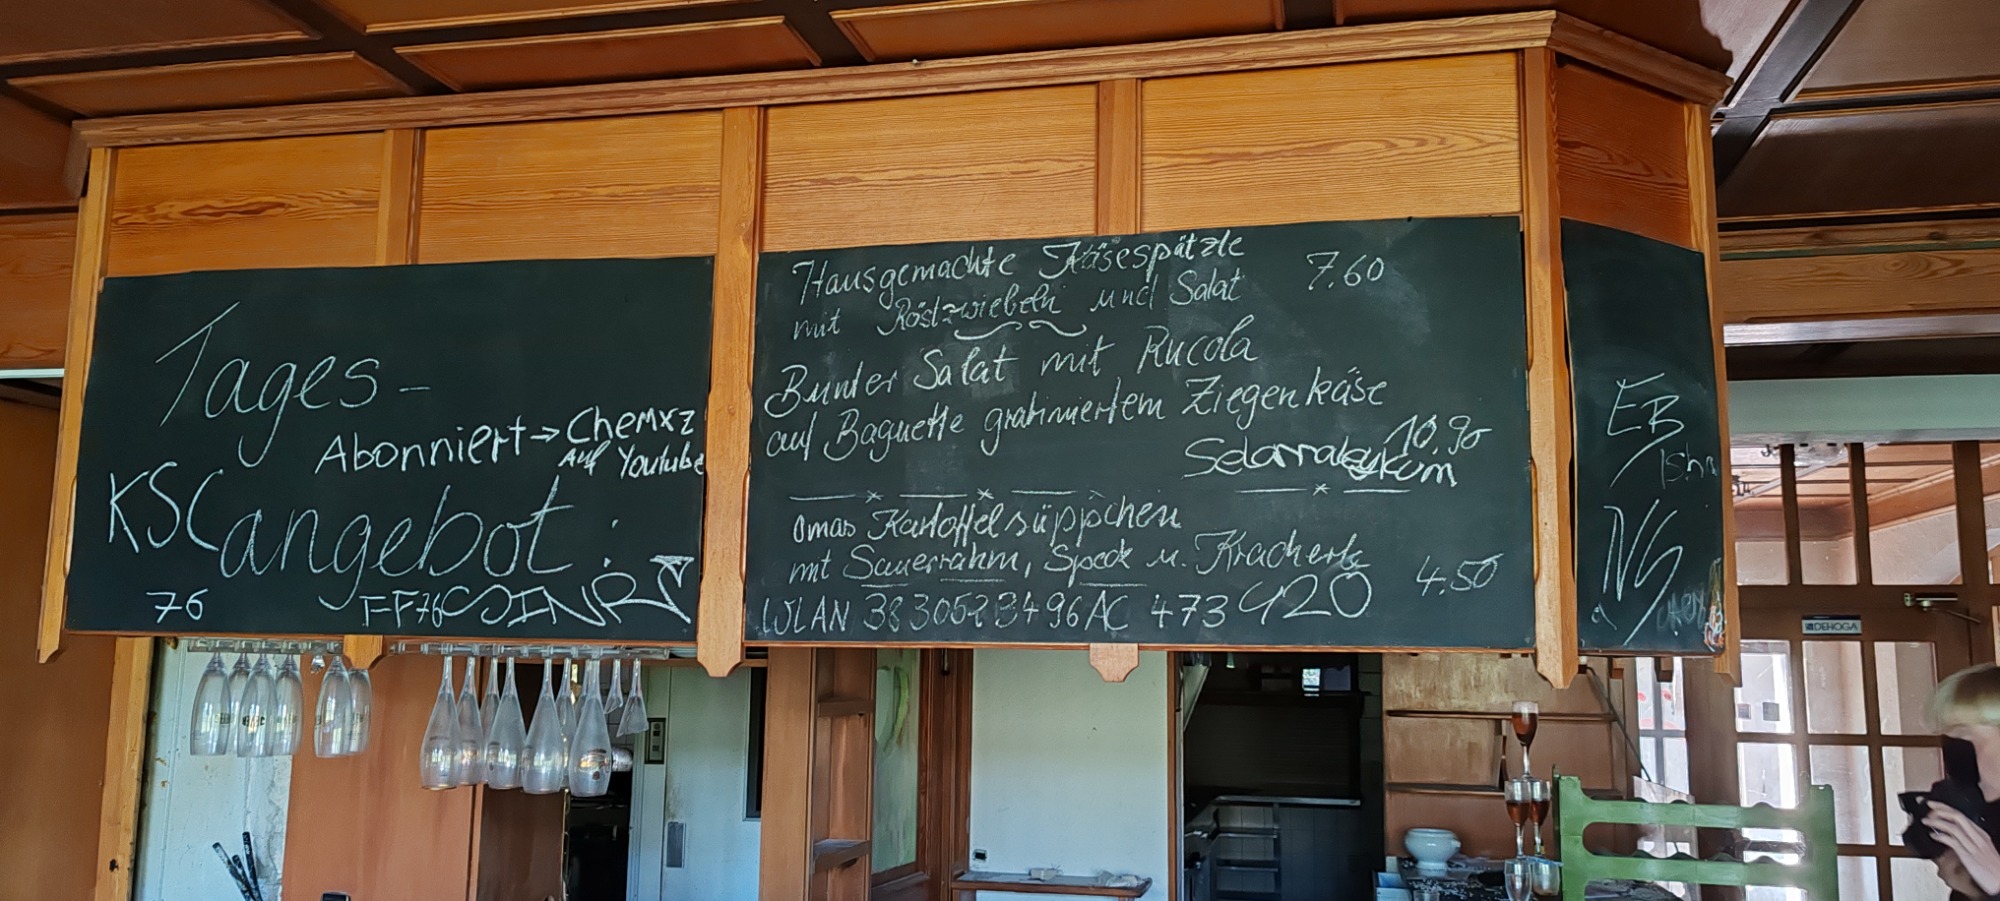 Tages-
Abonniert → Chemxz
Auf Youtube
KSC
angebot :
76
FF76
Hausgemachte Käsespätzle
mit Röstzwiebeln und Salat 7.60
Bunter Salat mit Rucola
auf Baguette gratiniertem Ziegenkäse
10,90
Selamaleykum
Omas Kartoffelsüppchen
mit Sauerrahm, Speck u. Kracherle 4.50
WLAN 473 420
EB
NG
DEHOGA